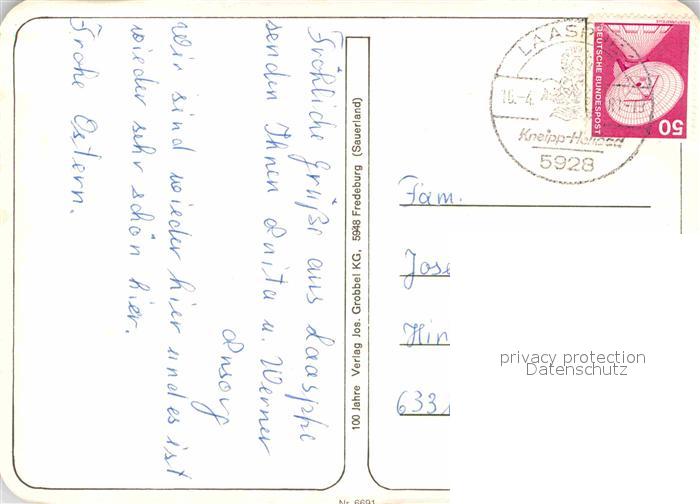 Fröhliche Grüße aus Laasphe
senden Ihnen Anita u. Werner
Wir sind wieder hier und es ist
wieder sehr schön hier.
Frohe Ostern.
100 Jahre Verlag Jos. Grobbel KG, 5948 Fredeburg (Sauerland)
LAASP
16.-4.
Kneipp-Heilbad
5928
DEUTSCHE BUNDESPOST
50
Fam.
Jose
Hin
633
privacy protection
Datenschutz
Nr. 6691